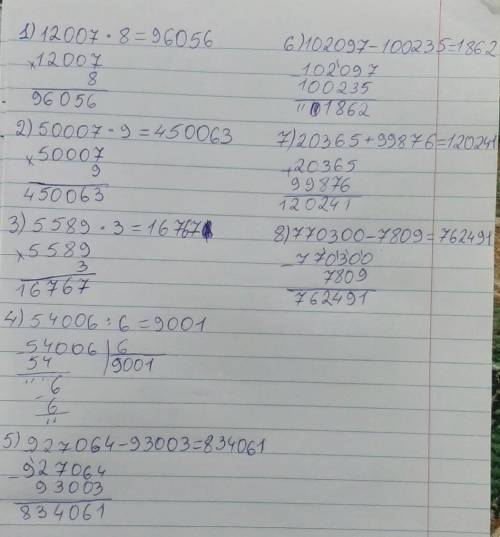 1) 12007 · 8 = 96056
× 12007
8
96056
2) 50007 · 9 = 450063
× 50007
9
450063
3) 5589 · 3 = 16767
× 5589
3
16767
4) 54006 : 6 = 9001
54006 | 6
54 | 9001
6
- 6
5) 927064 - 93003 = 834061
- 927064
93003
834061
6) 102097 - 100235 = 1862
- 102097
100235
1862
7) 20365 + 99876 = 120241
+ 20365
99876
120241
8) 770300 - 7809 = 762491
- 770300
7809
762491